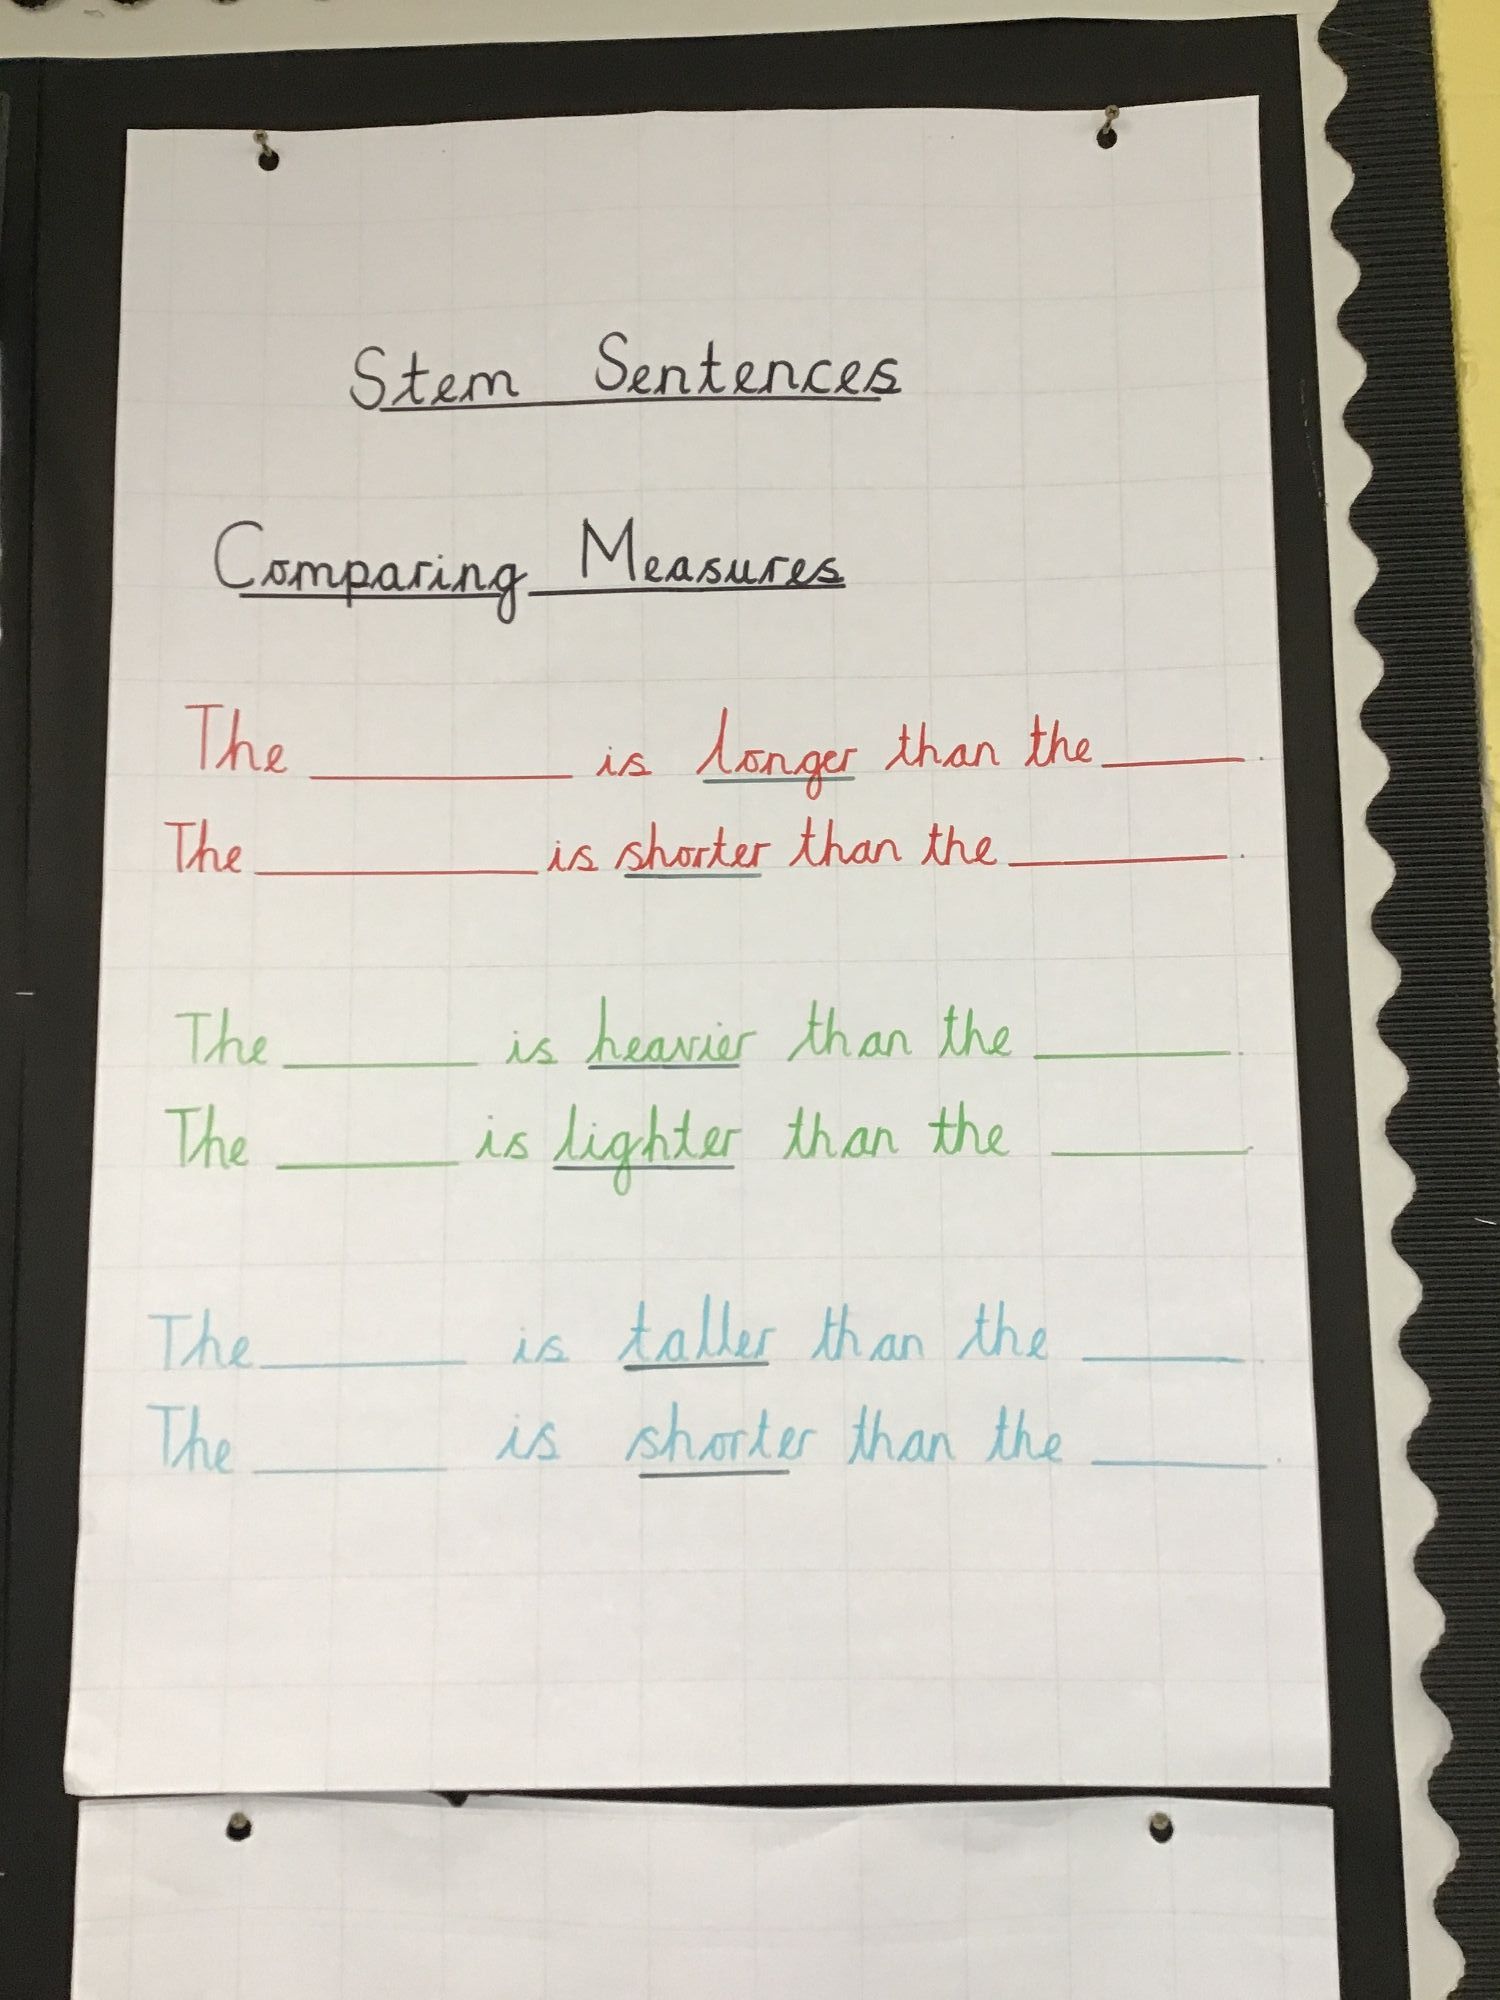 Stem Sentences
Comparing Measures
The ________ is longer than the ____.
The ________ is shorter than the ______.
The ______ is heavier than the ______.
The ______ is lighter than the ______.
The ______ is taller than the _____.
The ______ is shorter than the _____.